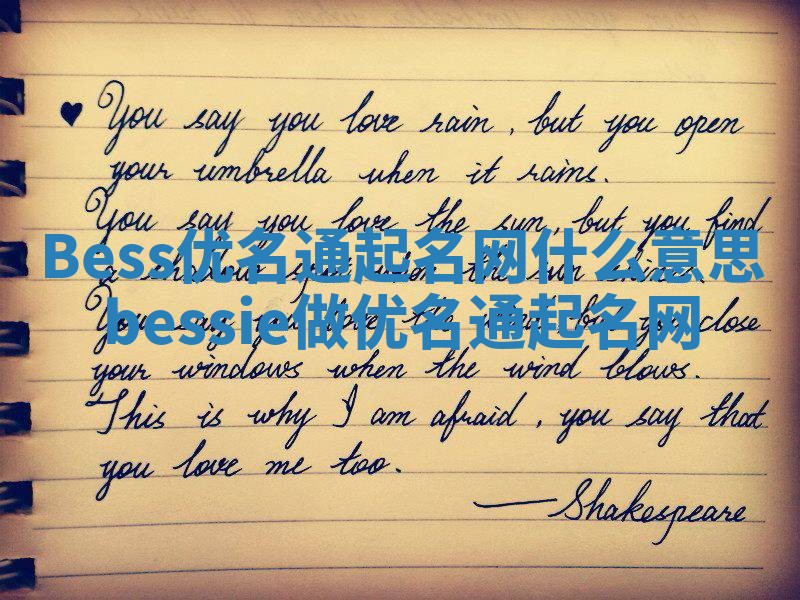 ♥ You say you love rain, but you open
your umbrella when it rains.
You say you love the sun, but you find
Bess优名通起名网什么意思
a shadow spot when the sun shines.
bessie做优名通起名网
You say you love the wind, but you close
your windows when the wind blows.
This is why I am afraid, you say that
you love me too.
—Shakespeare